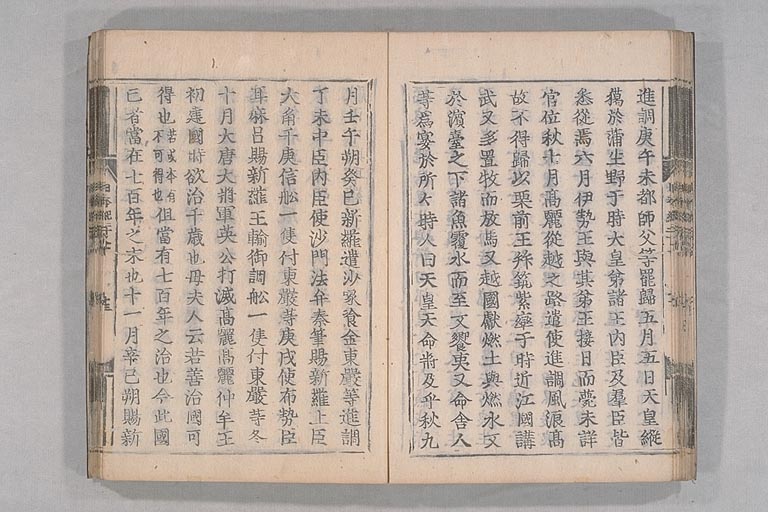 進調庚午末都師父等罷歸五月五日天皇縱
獦於蒲生野于時大皇弟諸王內臣及羣臣皆
悉從焉六月伊勢王與其弟王接日而薨未詳
官位秋七月高麗從越之路遣使進調風浪高
故不得歸以栗前王拜筑紫率于時近江國講
武又多置牧而放馬又越國獻燃土與燃水又
於濱臺之下諸魚覆水而至又饗夷又命舍人
等爲宴於所々時人曰天皇天命將及乎秋九
月壬午朔癸巳新羅遣沙㖨級飡金東嚴等進調
丁未中臣內臣使沙門法弁秦筆賜新羅上臣
大角干庚信舩一隻付東嚴等庚戌使布勢臣
耳麻呂賜新羅王輸御調舩一隻付東嚴等冬
十月大唐大將軍英公打滅高麗高麗仲牟王
初建國時欲治千歲也母夫人云若善治國可
得也若或本有不可得也但當有七百年之治也今此國
亡者當在七百年之末也十一月辛巳朔賜新